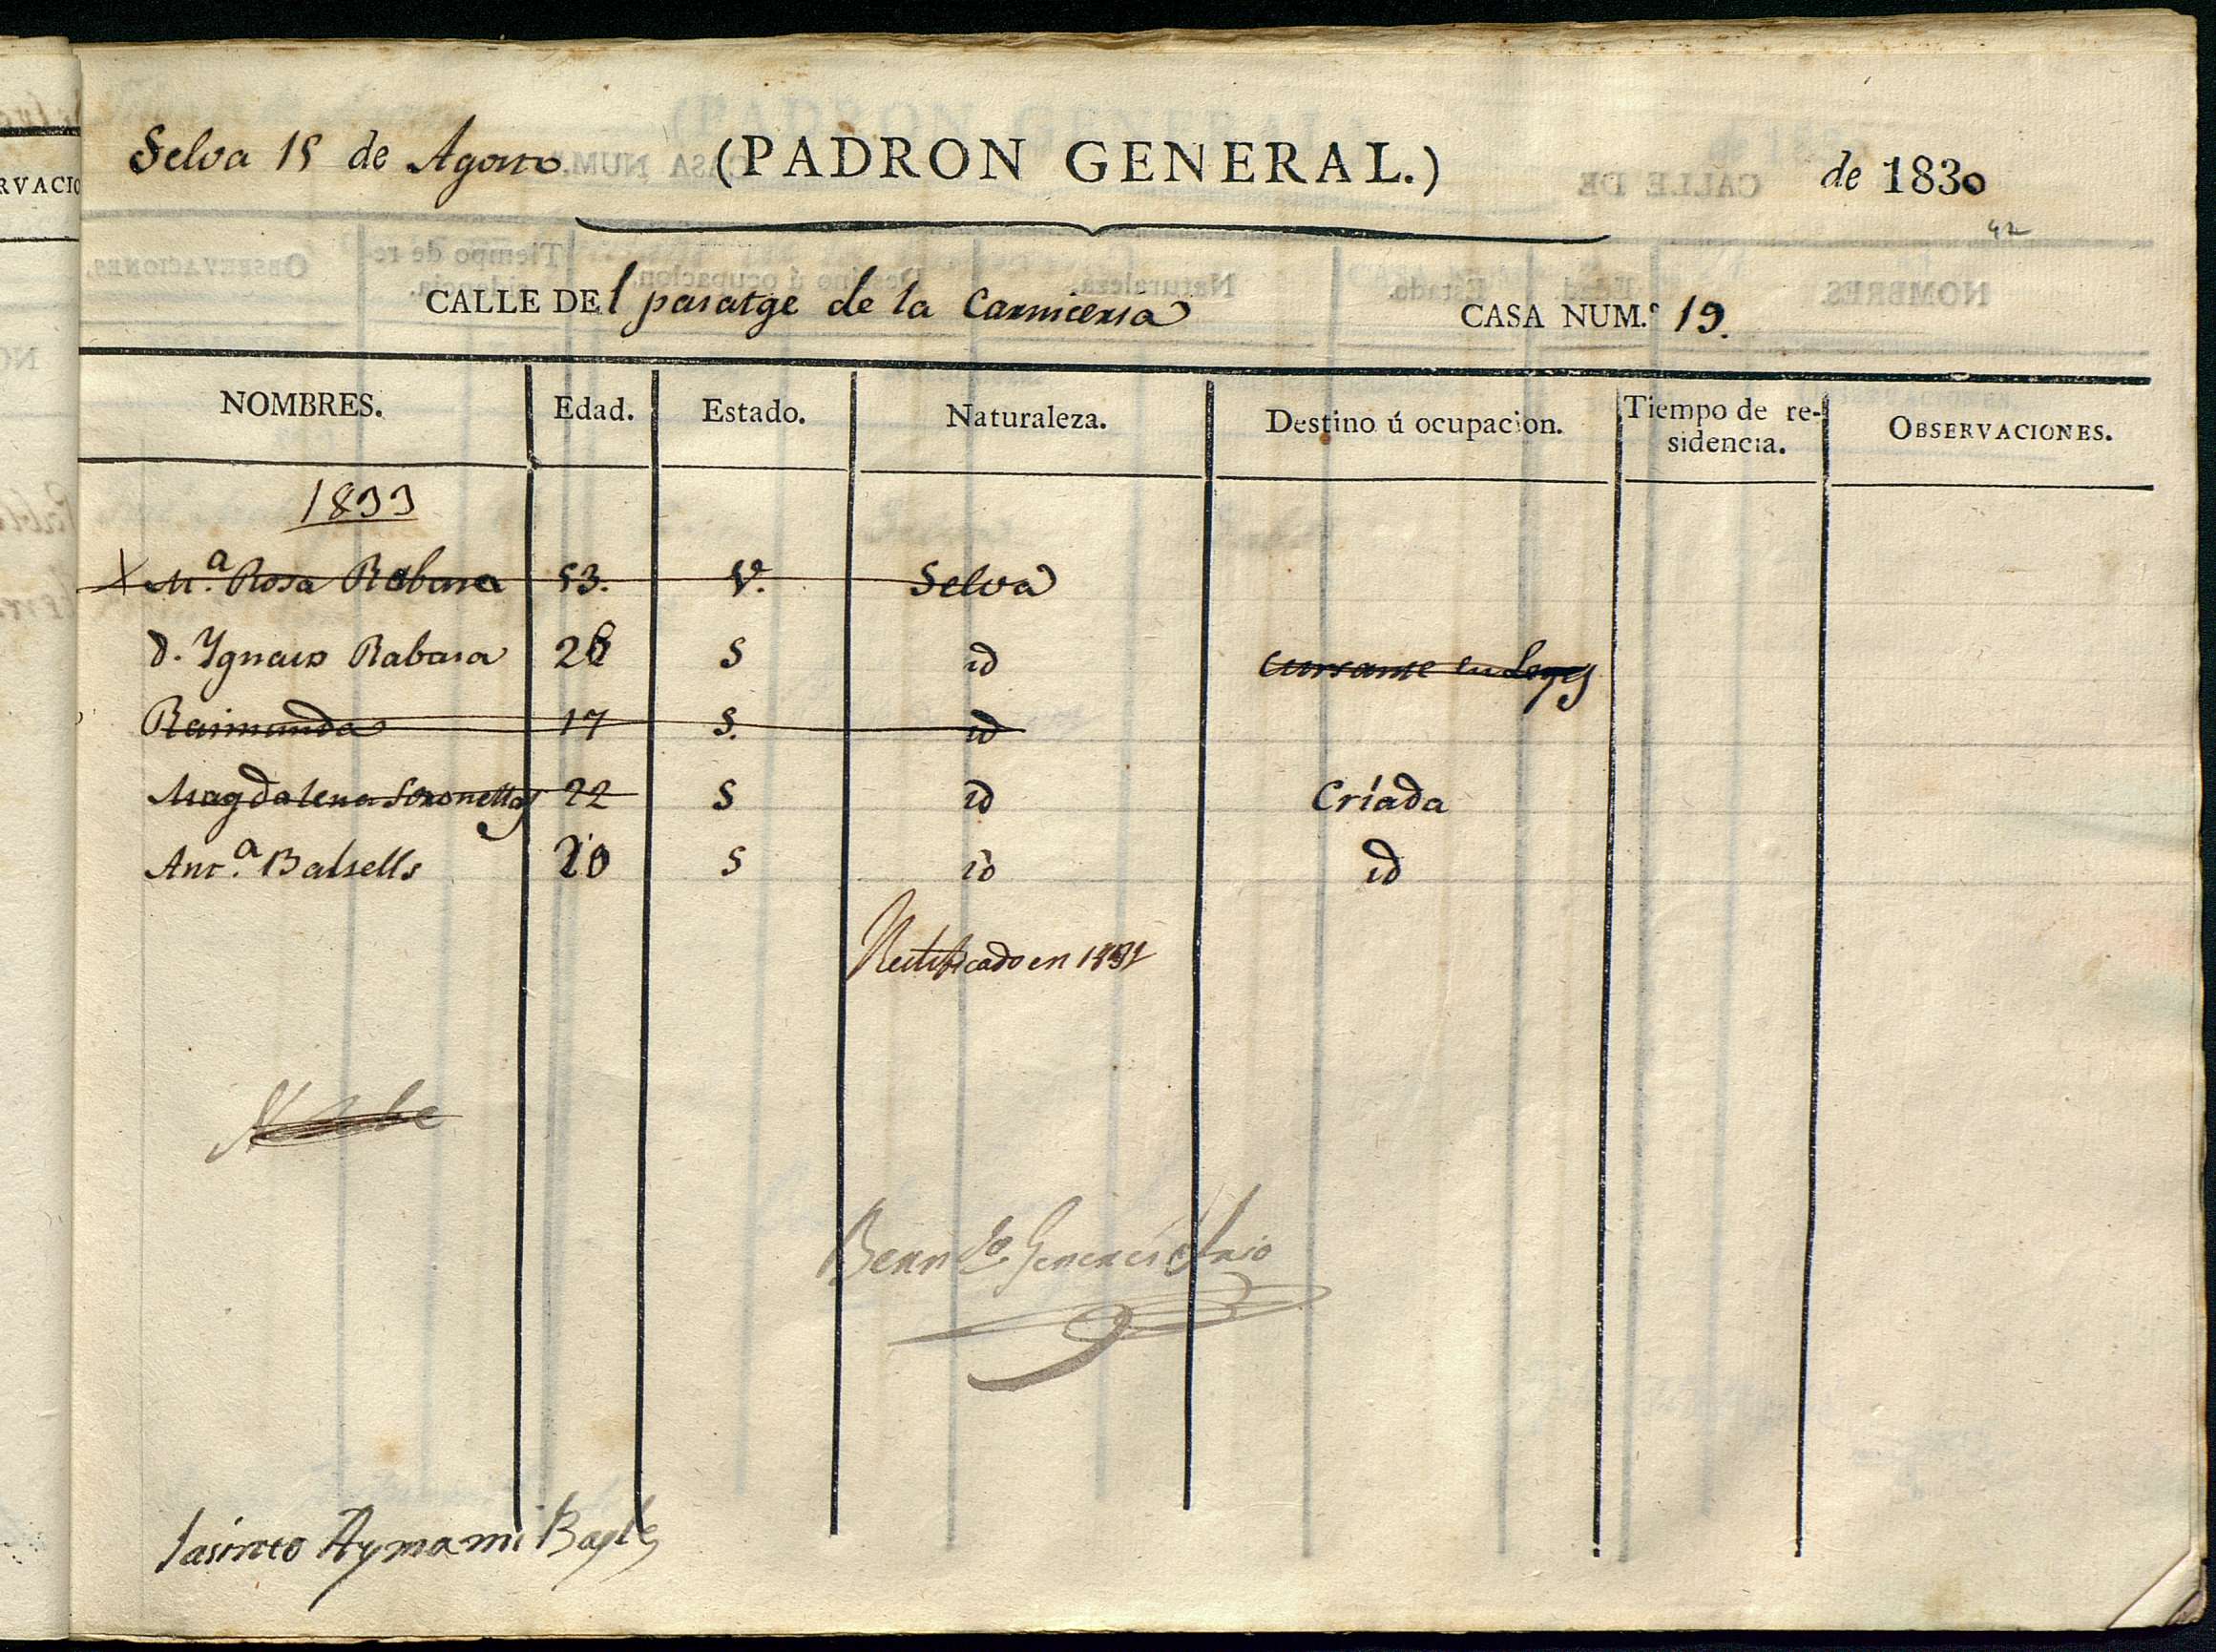 Selva 15 de Agosto (PADRON GENERAL.) de 1830
42
CALLE DEl pasatge de la Carniceria CASA NUM.º 19.
NOMBRES. Edad. Estado. Naturaleza. Destino ú ocupacion. Tiempo de re-sidencia. OBSERVACIONES.
1833
X M.ª Rosa Rabasa 53. V. Selva
d. Ygnacio Rabasa 28 S id Cursante en Leyes
Raimunda 17 S. id
Magdalena Soronellas 22 S id Criada
Ant.ª Balsells 20 S id id
Rectificado en 1832
Bern.do
Jasinto Aymami Bayle